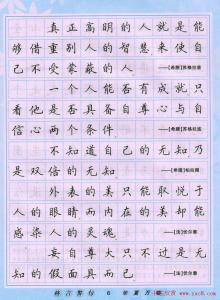 真正高明的人就是能
够借重别人的智慧来使自
己不受蒙蔽的人
——【希腊】苏格拉底
一个人能否有成就只
看他是否具备自尊心与自
信心两个条件
——【希腊】苏格拉底
不知道自己的无知乃
是双倍的无知
——【希腊】柏拉图
外表的美只能取悦于
人的眼睛而内在的美却能
感染人的灵魂
——【法】伏尔泰
妄自尊大只不过是无
知的假面具而已
——【法】伏尔泰
格言警句 6